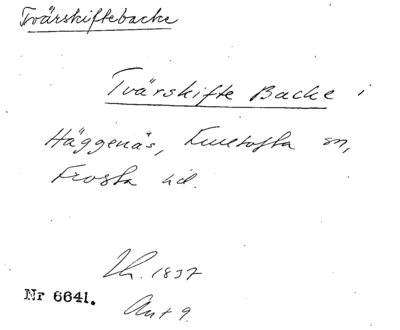 Tvärskiftebacke
Tvärskifte Backe i
Häggenäs, Kunetofta sn,
Frosta hd.
Lh. 1837
Nr 6641.
Akt 9.